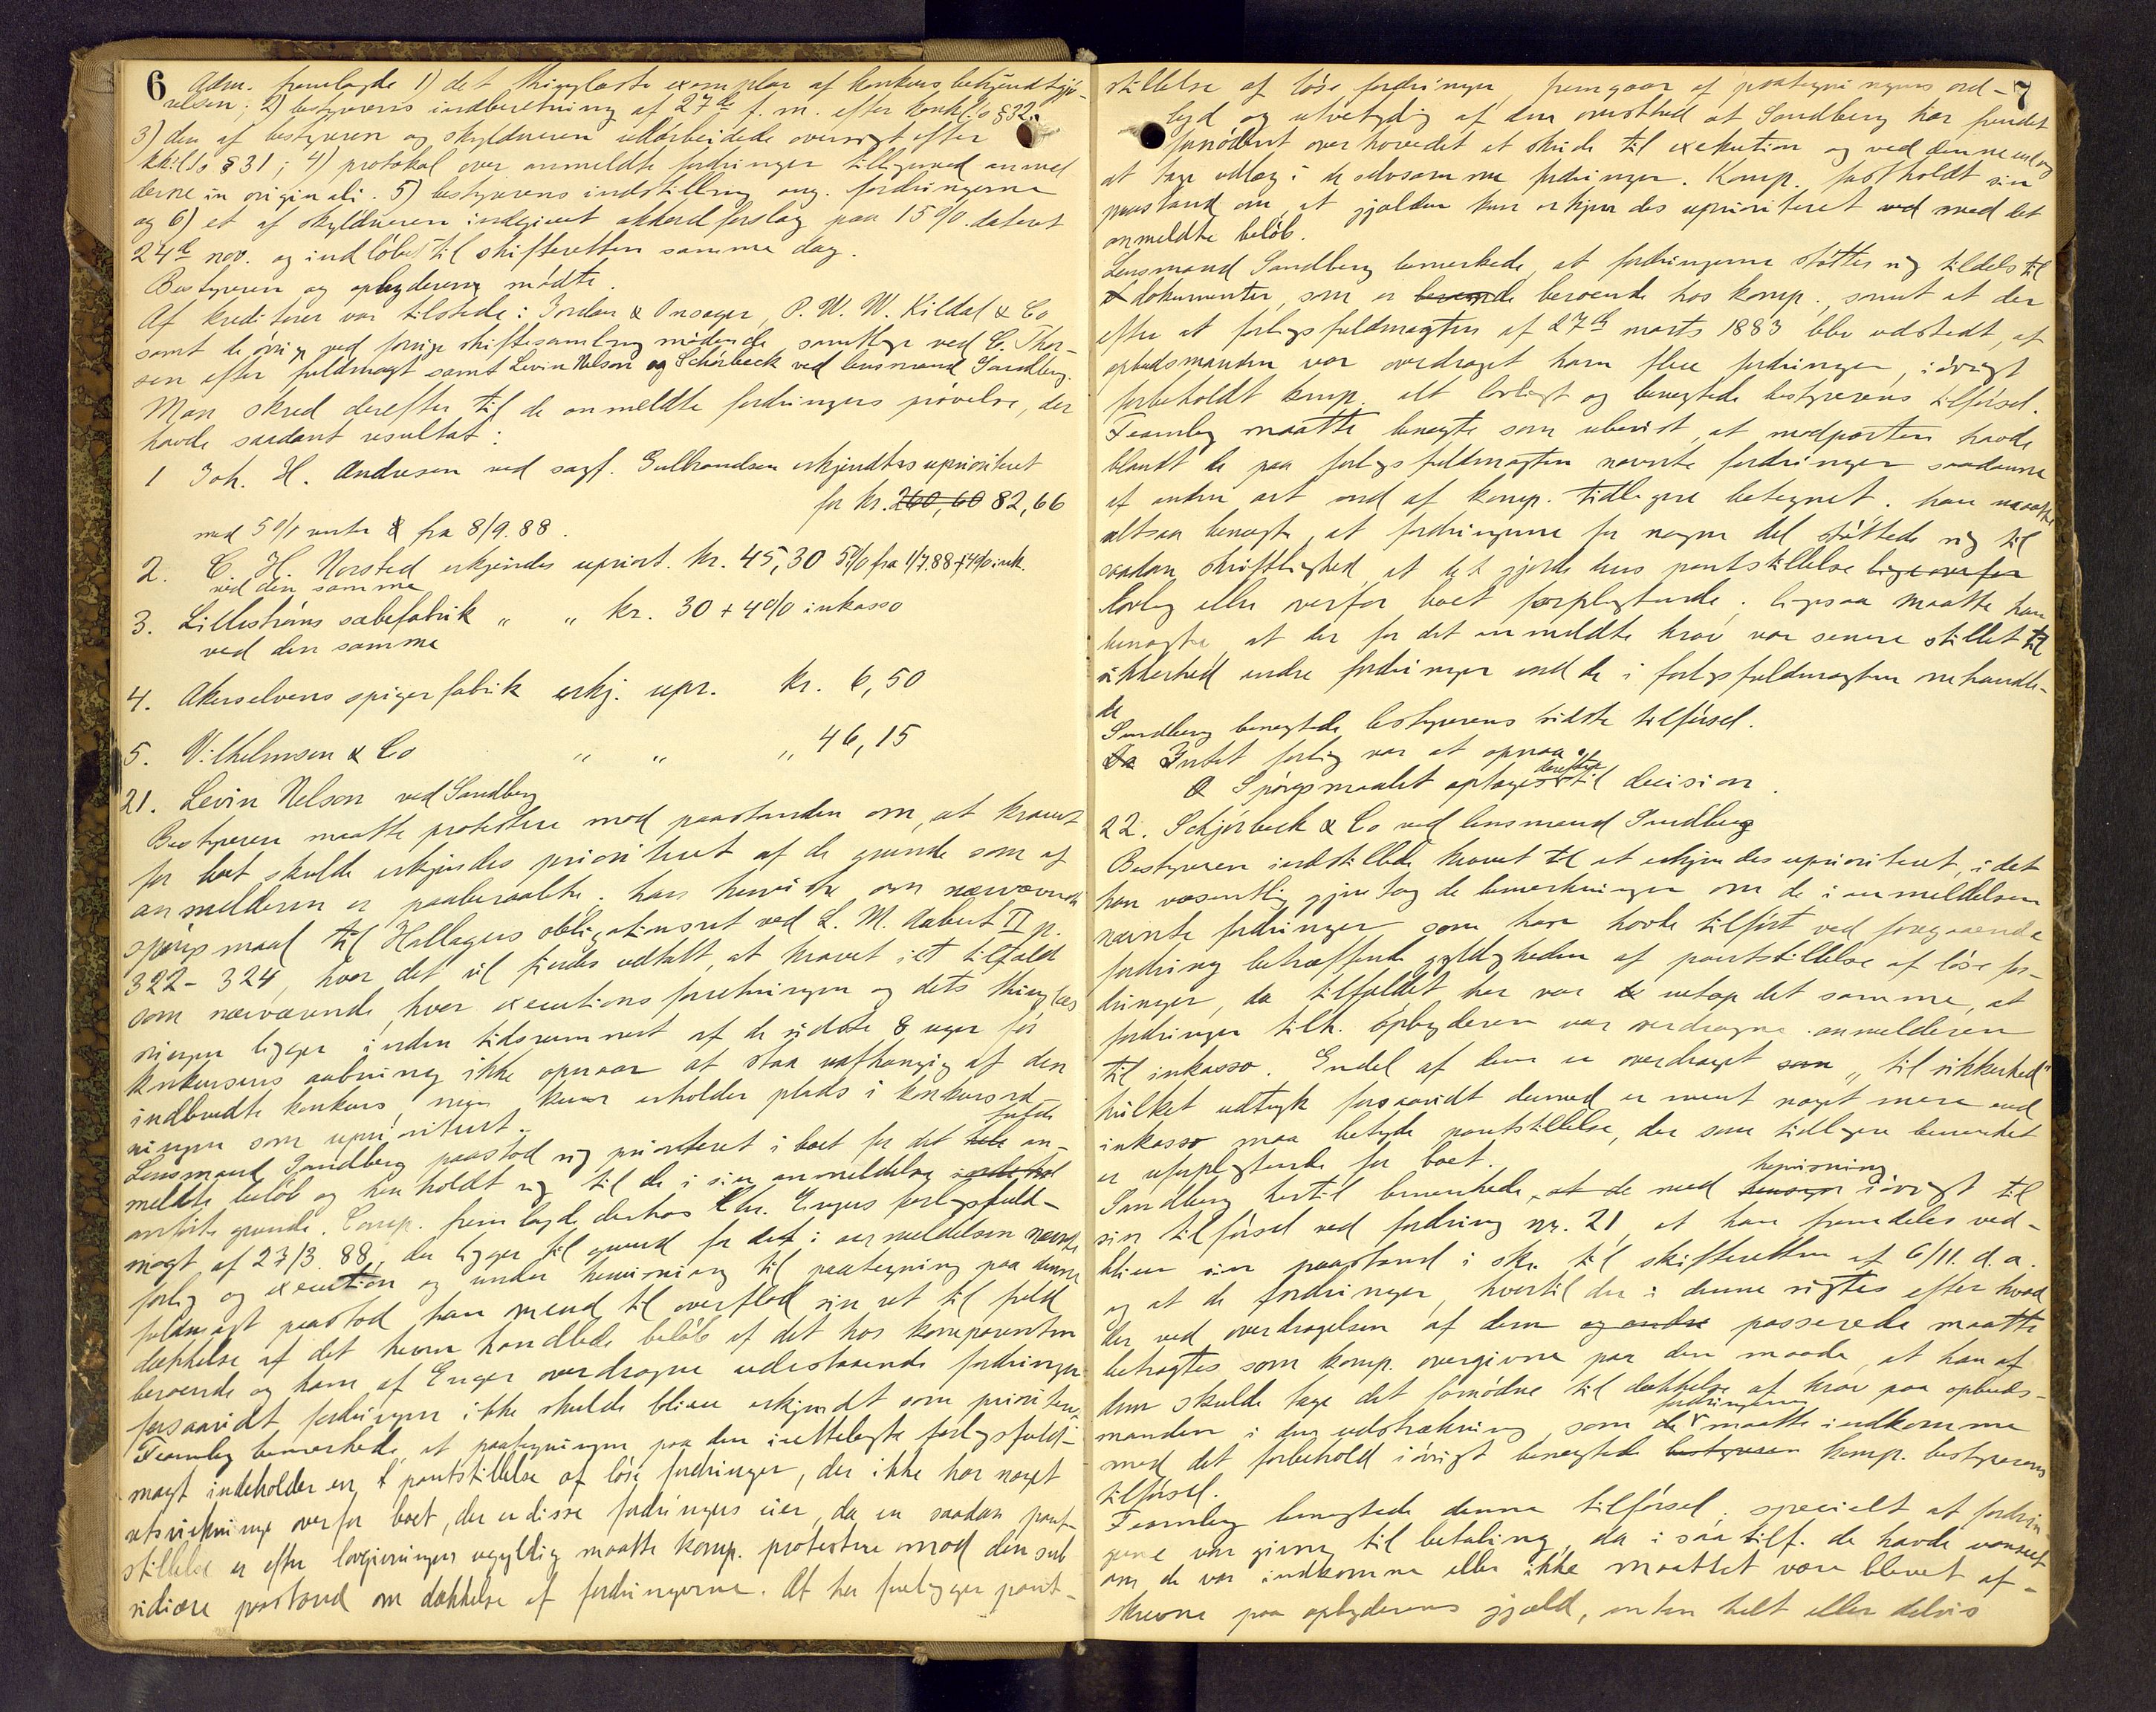 6
Adm. fremlagde 1) det thinglæste exemplar af konkursbekjendtgjø-
relsen; 2) bestyrerens indberetning af 27de f. m. efter konkl. § 32.
3) den af bestyreren og skyldneren udarbeidede oversigt efter
§ 31; 4) protokol over anmeldte fordringer tilligemed anmel
derne in originali. 5) bestyrerens indstilling ang. fordringerne
og 6) et af skyldneren indgivet akkordforslag paa 15 % dateret
24de nov. og indløbet til skifteretten samme dag.
Bestyreren og opbyderen mødte.
Af kreditorer var tilstede: Jordan & Onsager, P. W. W. Kildal & Co
samt de øvrige ved forrige skiftesamling mødende, samtlige ved C. Thor-
sen efter fuldmagt samt Levin Nelson og Schørbeck ved lensmand Sandberg.
Man skred derefter til de anmeldte fordringers prøvelse, der
havde saadant resultat:
1 Joh. H. Andresen ved sagf. Gulbrandsen erkjendtes uprioriteret
for kr. 260,60 82,66
med 5 % rente fra 8/9. 88.
2. C. H. Norsted erkjendes upriort. kr. 45,30 5% fra 1/7.88 + 4% ink.
ved den samme
3. Lillestrøms sæbefabrik " " kr. 30 + 4% inkasso
ved den samme
4. Akerselvens spigerfabrik erkj. upr. kr. 6,50
5. Vilhelmsen & Co " " " 46,15
21. Levin Nelson ved Sandberg
Bestyreren maatte protestere mod paastanden om, at kravet
for boet skulde erkjendes prioriteret af de grunde som af
anmelderen er paaberaabte. hans henviste om nærværende
spørgsmaal til Hallagers obligationsret ved L. M. Aubert II p.
322-324, hvor det vil findes udtalt, at kravet i et tilfæld
som nærværende, hvor executionsforretningen og dets thinglæs
ningen ligger inden tidsrummet af de sidste 8 uger før
konkursens aabning ikke opnaar at staa uafhængig af den
indtraadte konkurs, men kun erholder plads i konkursord
ningen som uprioritert.
Lensmand Sandberg paastod sig prioriteret i boet for det hele fulde an-
meldte beløb og henholdt sig til de i sin anmeldelse
anførte grunde. Comp. fremlagde derhos Chr. Engers forligsfuld-
magt af 27/3. 88, der ligger til grund for det i anmeldelsen nævnte
forlig og execution og under henvisning til paategning paa denne
fuldmagt paastod han mend til overflod sin ret til fuld
dækkelse af det heromhandlede beløb af det hos komparenten
beroende og ham af Enger overdragne udestaaende fordringer
forsaavidt fordringen ikke skulde blive erkjendt som prioriteret.
Fearnley bemerkede, at paategningen paa den irettelagte forligsfuld-
magt indeholder en pantstillelse af løse fordringer, der ikke har noget
retsvirkninge overfor boet, der er disse fordringers eier, da en saadan pant-
stillelse er efter lovgivningen ugyldig maatte komp. protestere mod den sub
sidiære paastand om dækkelse af fordringerne. At her foreligger pant-
7
stillelse af løse fordringer, fremgaar af paategningens ord-
lyd og utvetydig af den omstthed at Sandberg har fundet
fornødent overhovedet at skride til exekution og ved denne
at tage udlæg i de selvsamme fordringer. Komp. fastholdt sin
paastand om, at gjælden kun erkjendes uprioriteret ved med det
anmeldte beløb.
Lensmand Sandberg bemerkede, at fordringerne støttes sig tildels til
dokumenter, som er beroende hos komp., samt at der
efter at forligsfuldmagten af 27de marts 1883 blev udstedt, af
opbudsmanden var overdraget ham flere fordringer, iøvrigt
forbeholdt komp. alt lovligt og benegtede bestyrerens tilførsel.
Fearnley maatte benegte som ubevist, at modparten havde
blandt de paa forligsfuldmagten nævnte fordringer saadanne
af anden art end af komp. tidligere betegnet. han maatte
altsaa benegte, at fordringerne for nogen del støttede sig til
saadan skriftlighed, at det gjorde hans pantstillelse ligeoverfor
lovlig eller overfor boet forpligtende. ligesaa maatte han
benegte, at der for det anmeldte krav var senere stillet til
sikkerhed andre fordringer end de i forligsfuldmagten nehandle-
de
Sandberg benegtede bestyrerens sidste tilførsel.
Da Intet forlig var at opnaa
Spørgsmaalet optages derefter til decision.
22. Schjørbeck & Co ved lensmand Sandberg
Bestyreren indstillede kravet til at erkjendes uprioriteret, i det
han væsentlig gjentog de bemerkninger om de i anmeldelsen
nævnte fordringer som han havde tilført ved foregaaende
fordring betræffende gyldigheden af pantstillelse af løse for-
dringer, da tilfældet her var netop det samme, at
fordringer tilh. opbyderen var overdragne anmelderen
til inkasso. Endel af dem er overdraget som "til sikkerhed"
hvilket udtryk forsaavidt dermed er ment noget mere end
inkasso maa betyde pantstillelse, der som tidligere bemerket
er uforpligtende for boet.
Sandberg hertil bemerkede, at de med hensyn henvisning iøvrigt til
sin tilførsel ved fordring nr. 21, at han fremdeles ved-
bliver sin paastand i skr. til skifteretten af 6/11. d. a.
og at de fordringer, hvortil der i denne sigtes efter hvad
der ved overdragelsen af dem og andre passerede maatte
betragtes som komp. overgivne paa den maade, at han af
dem skulde tage det fornødne til dækkelse af krav paa opbuds-
manden i den udstrækning, som de fordringerne maatte indkomme
med det forbehold iøvrigt benegtede bestyreren komp. bestyrerens
tilførsel.
Fearnley benegtede denne tilførsel. specielt at fordrin-
gene var givne til betaling, da i saa tilf. de havde uanseet
om de var indkomne eller ikke maattet være blevet af-
skrevne paa opbyderens gjæld, enten helt eller delvis